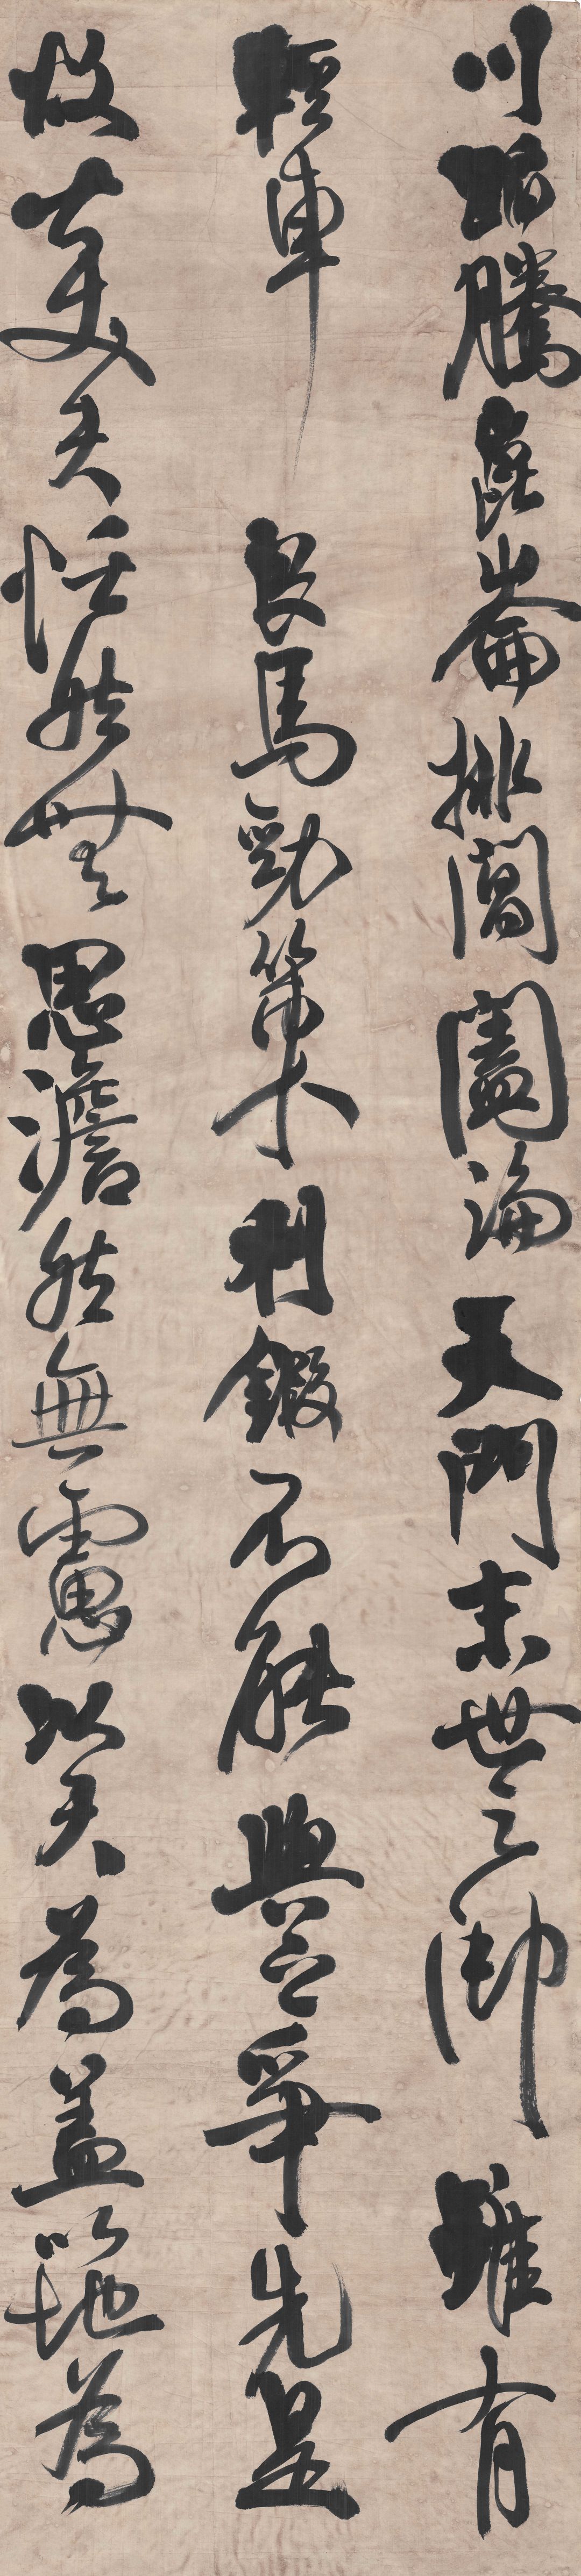 川蹈騰崑崙排閶闔淪天門末世之御雖有
輕車良馬勁策不利鍛不能與之爭先是
故大丈夫恬然無思澹然無慮以天為蓋以地為